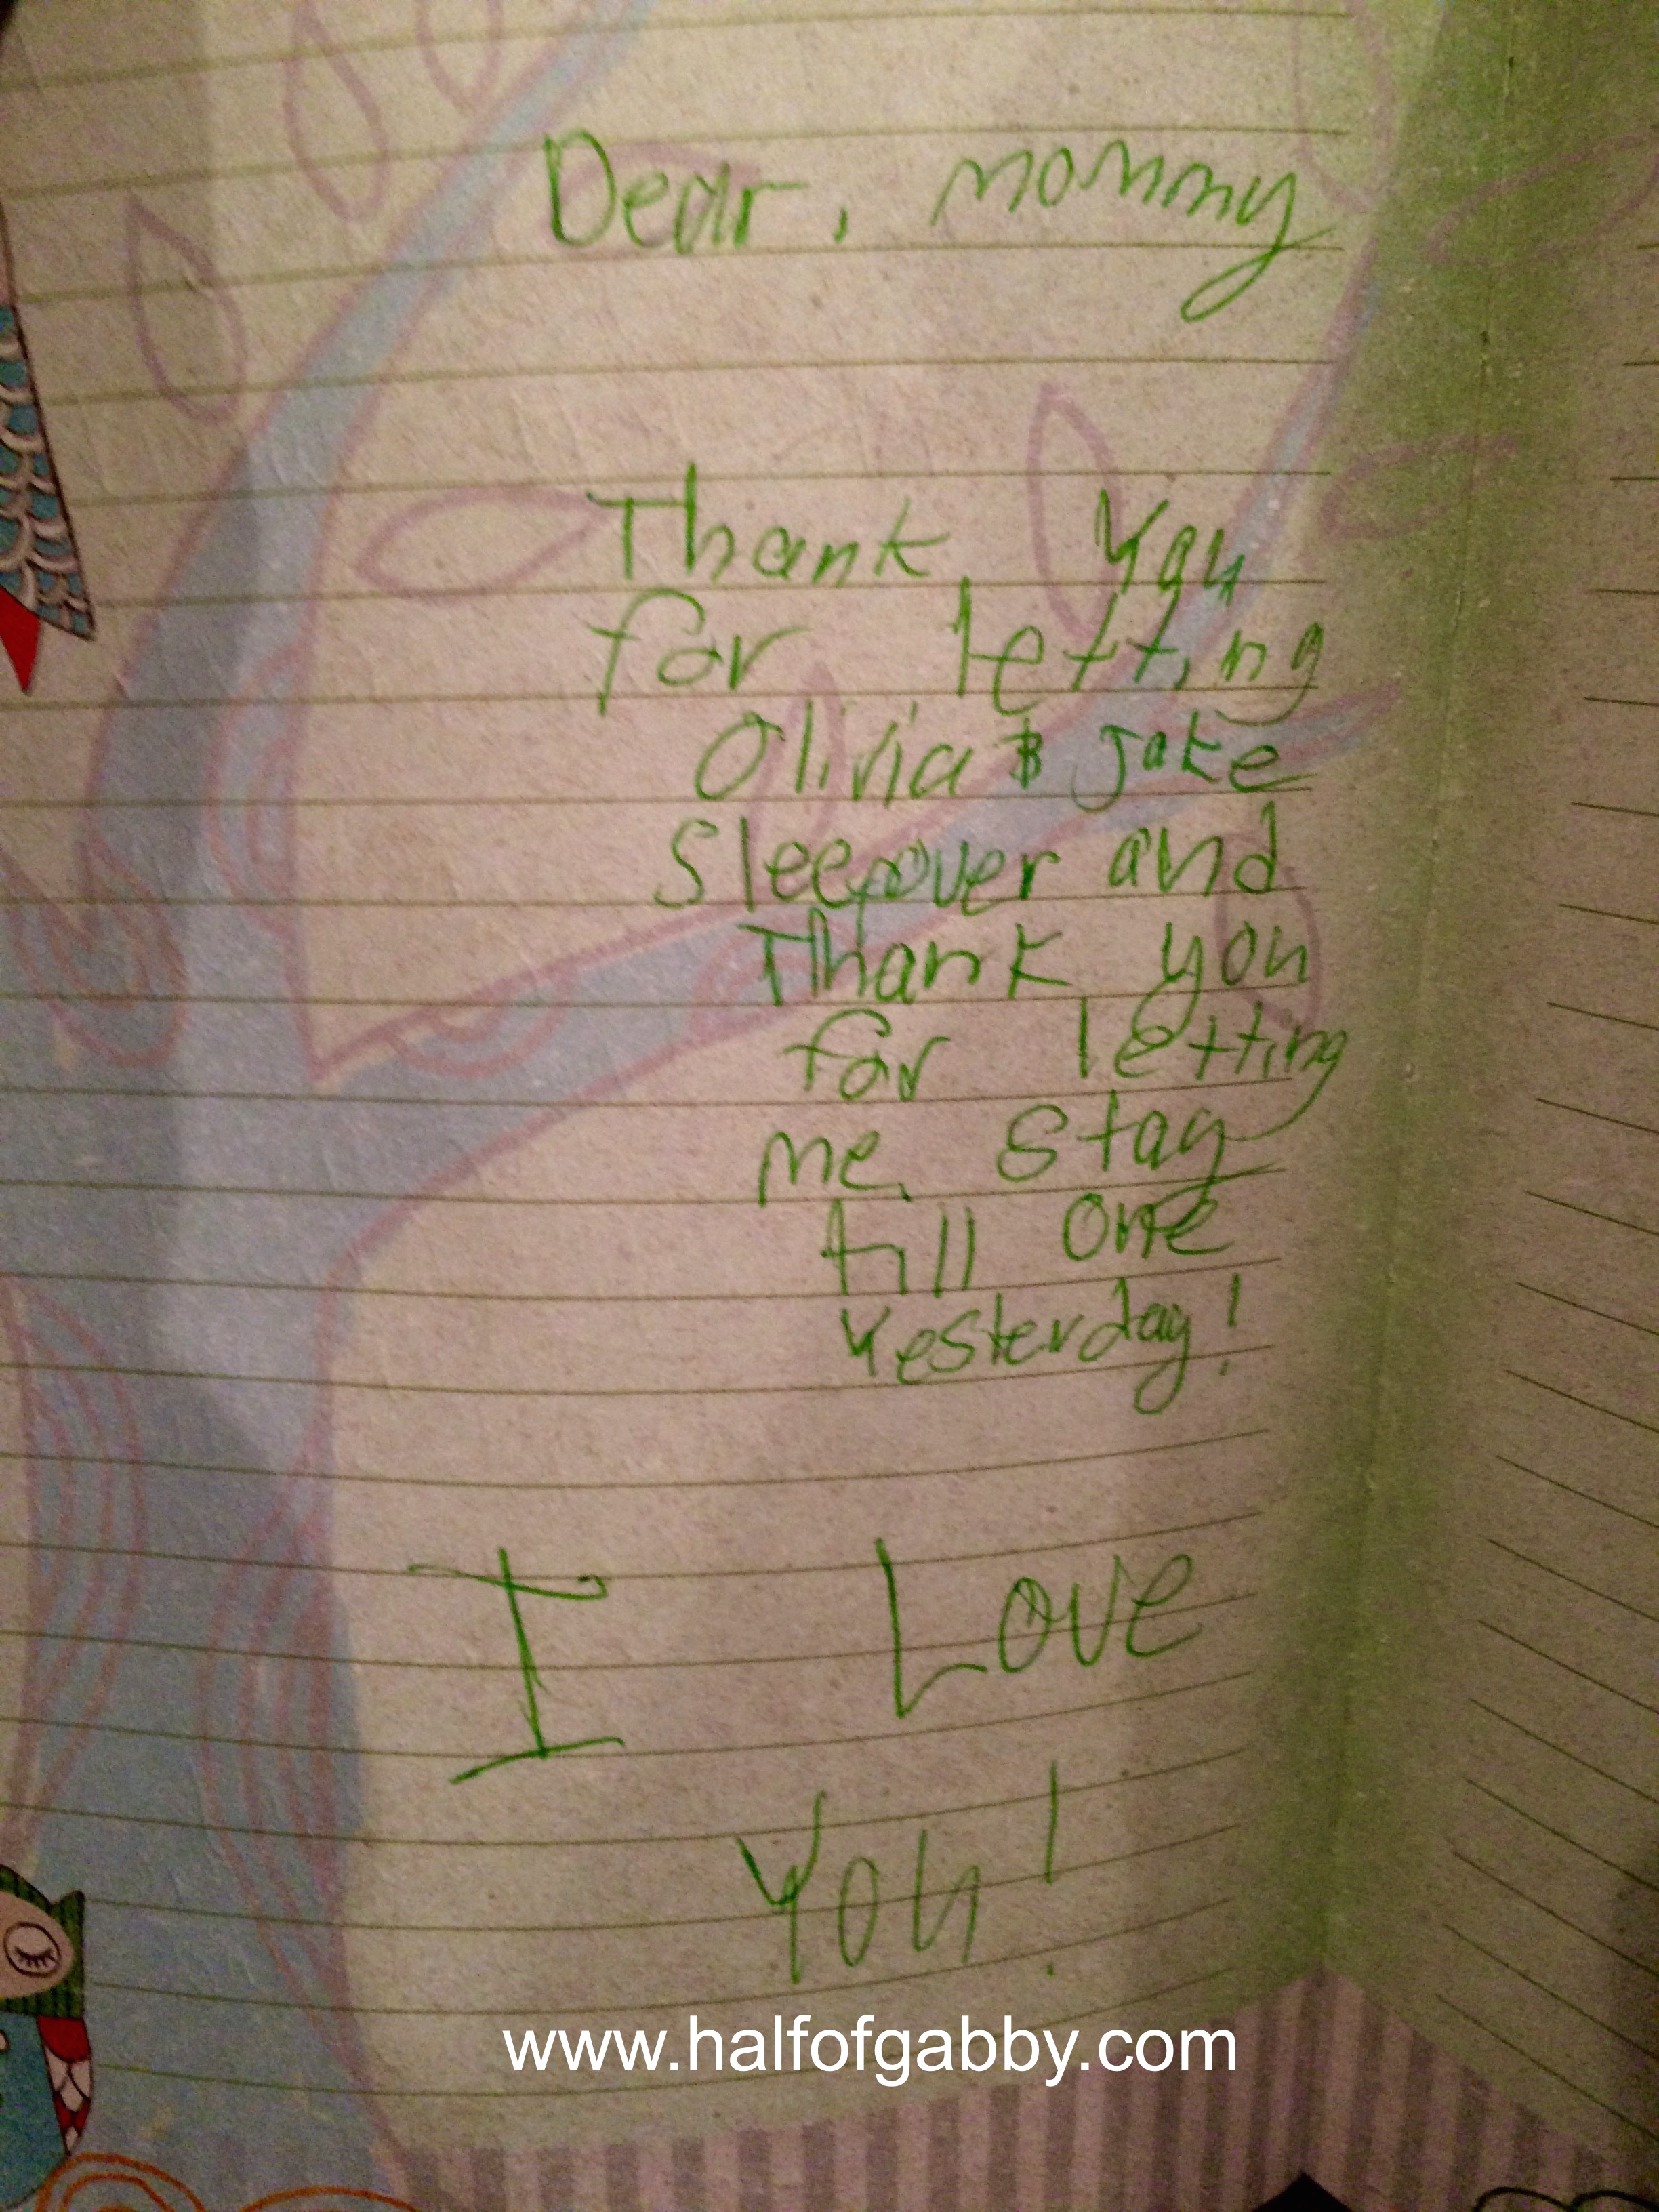 Dear, mommy
Thank you
for letting
Olivia & Jake
Sleepover and
Thank you
for letting
me stay
till one
Yesterday!
I Love
You!
www.halfofgabby.com